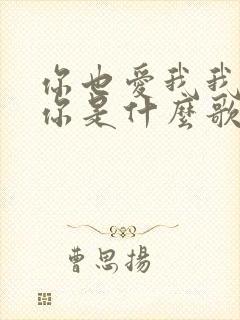 你也愛我我
你是什麼歌
曹思揚